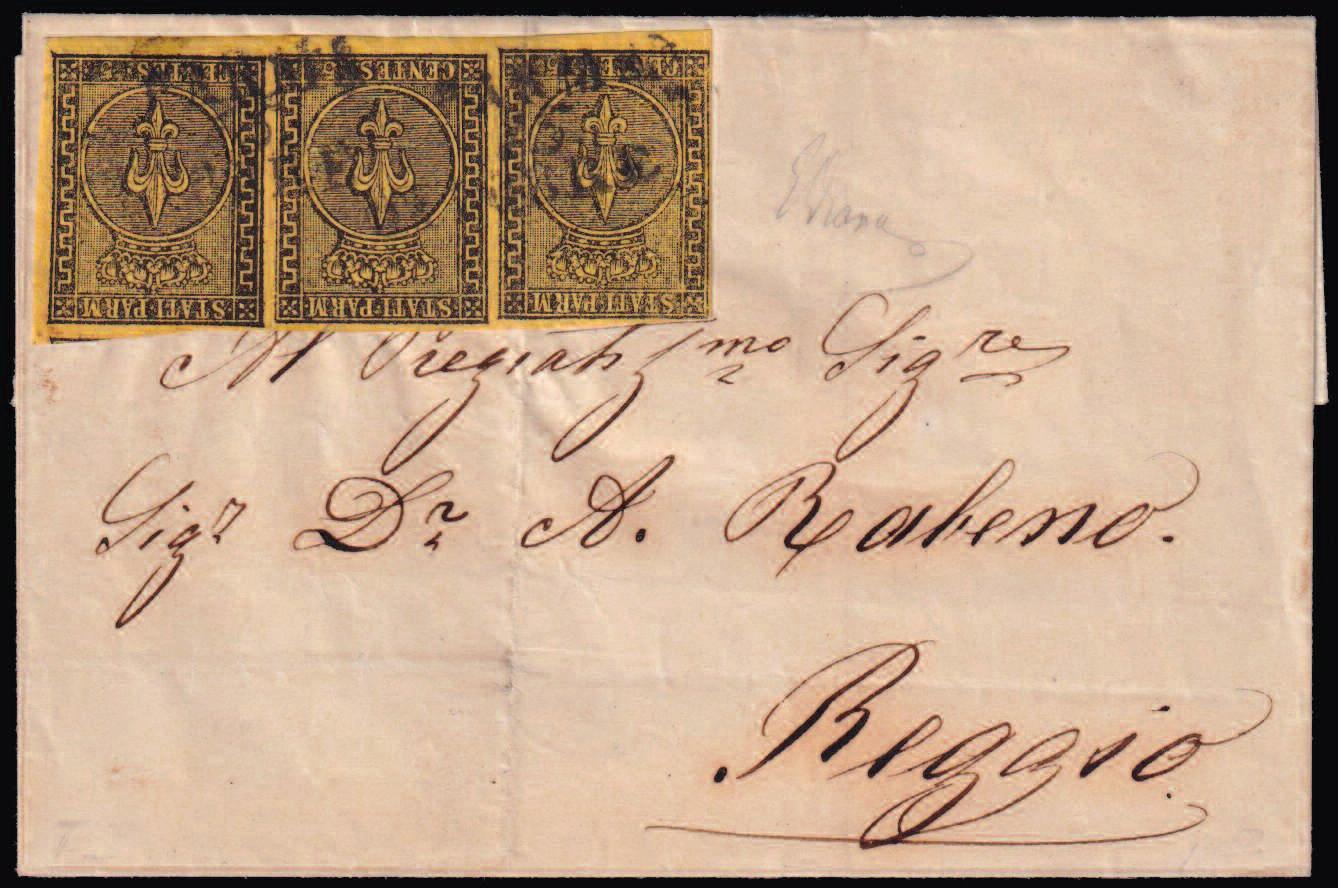 CENTES. 5 CENTES. 5 CENTES. 5
STATI PARM. STATI PARM. STATI PARM.
EDiana
Al Pregiatis/mo Sigre
Sigr Dr A. Rabeno.
Reggio